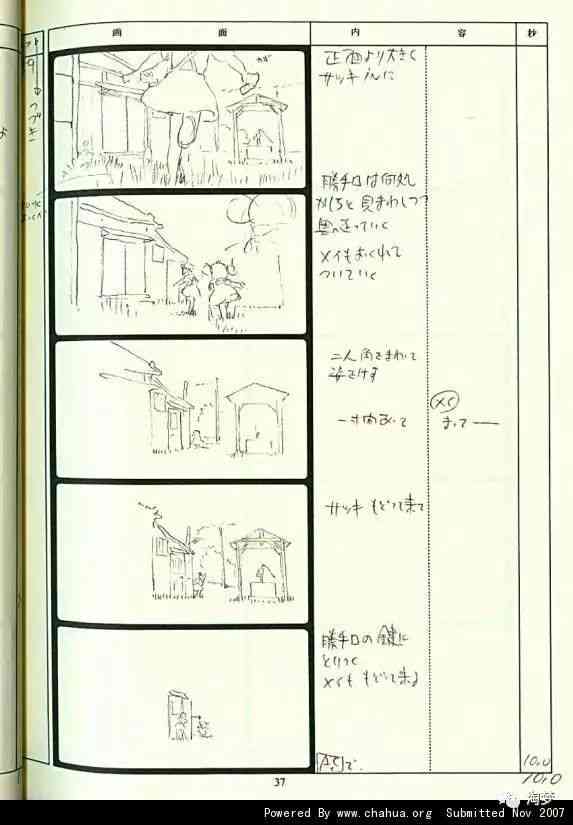 画 面 内 容 秒
つづき
正面より大きく
サツキ
勝手口は何処
かしらと見まわしつつ
奥へ走っていく
メイもおくれて
ついていく
二人角をまわって
姿をけす
一寸間あって
メイ
まってー
サツキ もどって来て
勝手口の鍵に
とりつく
メイも もどって来る
で
10.0
10.0
37
淘梦
Powered By www.chahua.org Submitted Nov 2007